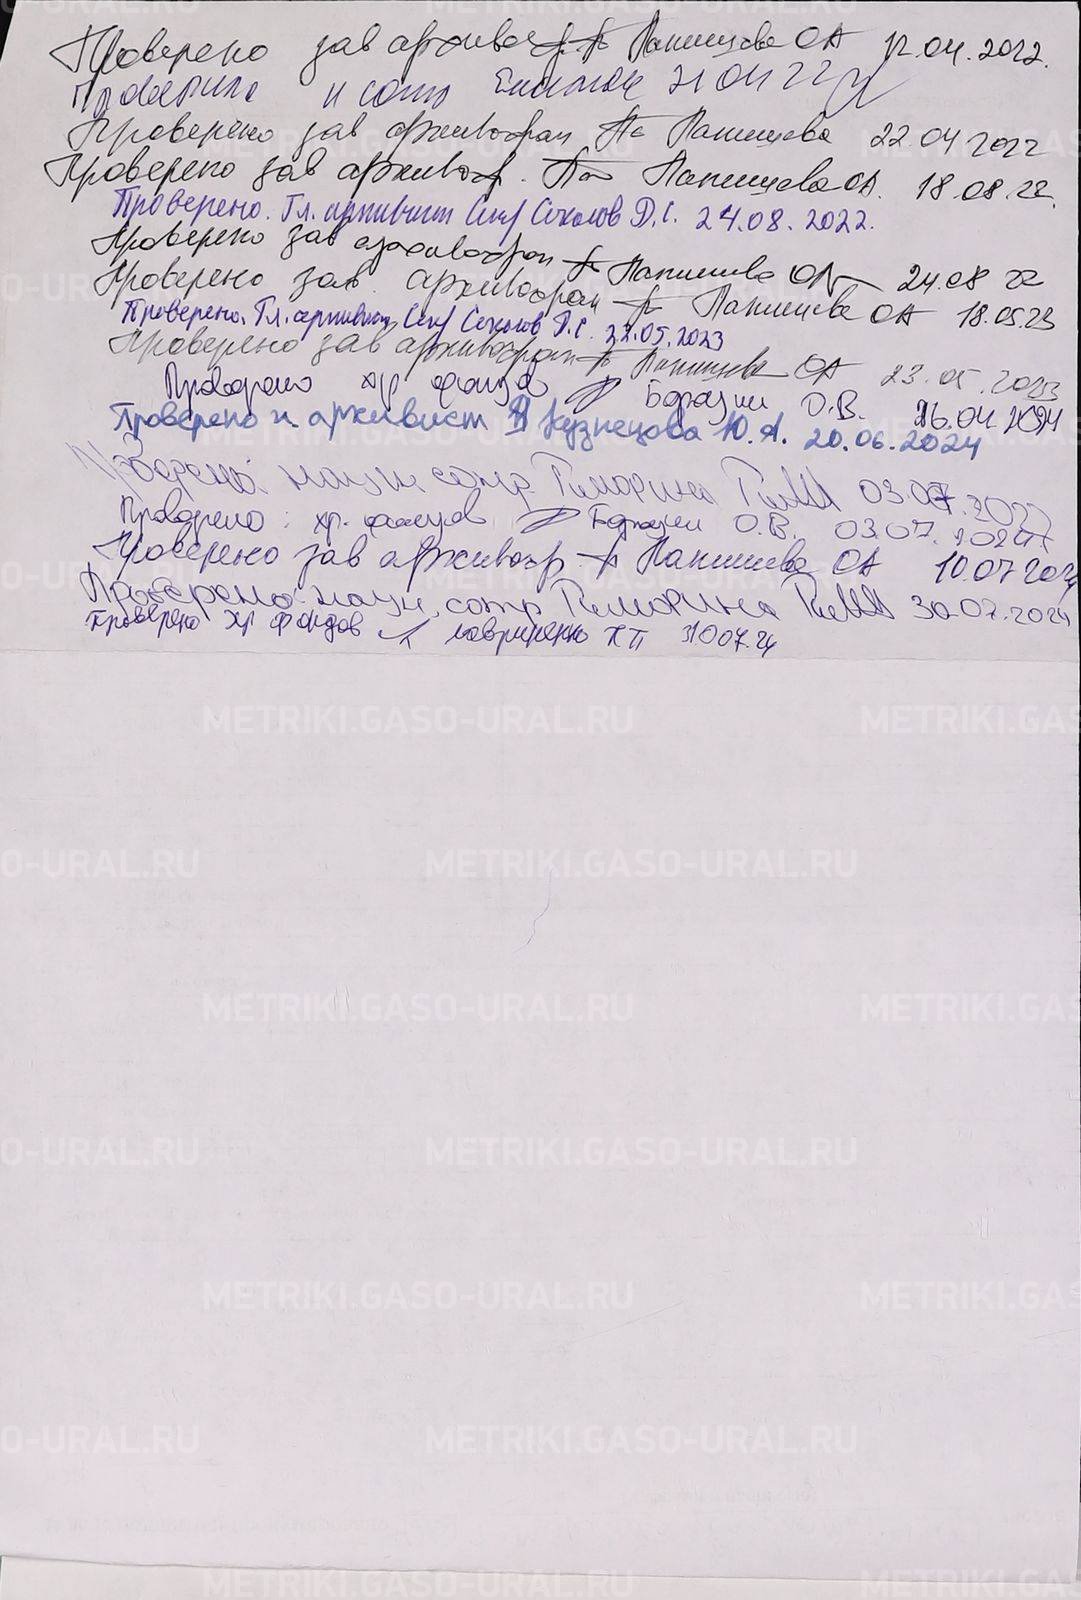 Проверено зав архивохр. Папищева ОА 12.04.2022.
Проверила н сотр 21 04 22
Проверено зав архивохран Папищева 22 04 2022
Проверено зав архивохр. Папищева ОА. 18.08.22.
Проверено. Гл. архивист Соколов Д.С. 24.08.2022.
Проверено зав архивохран Папищева ОА 24.08 22
Проверено зав. архивохран Папищева ОА 18.05.23
Проверено. Гл. архивист Соколов Д.С. 22.05.2023
Проверено зав архивохран Папищева ОА 23.05.2023
Проверено хр фондов О.В. 26.04.2024
Проверено н. архивист Кузнецова Ю.А. 20.06.2024
Проверено: научн сотр. Тиморина 03.07.
Проверено: хр. фондов О.В. 03.07.2024
Проверено зав архивохр. Папищева ОА 10.07 2024
Проверено: научн. сотр Тиморина 30.07.2024
Проверено Хр Фондов Лавриненко 31007.24
METRIKI.GASO-URAL.RU